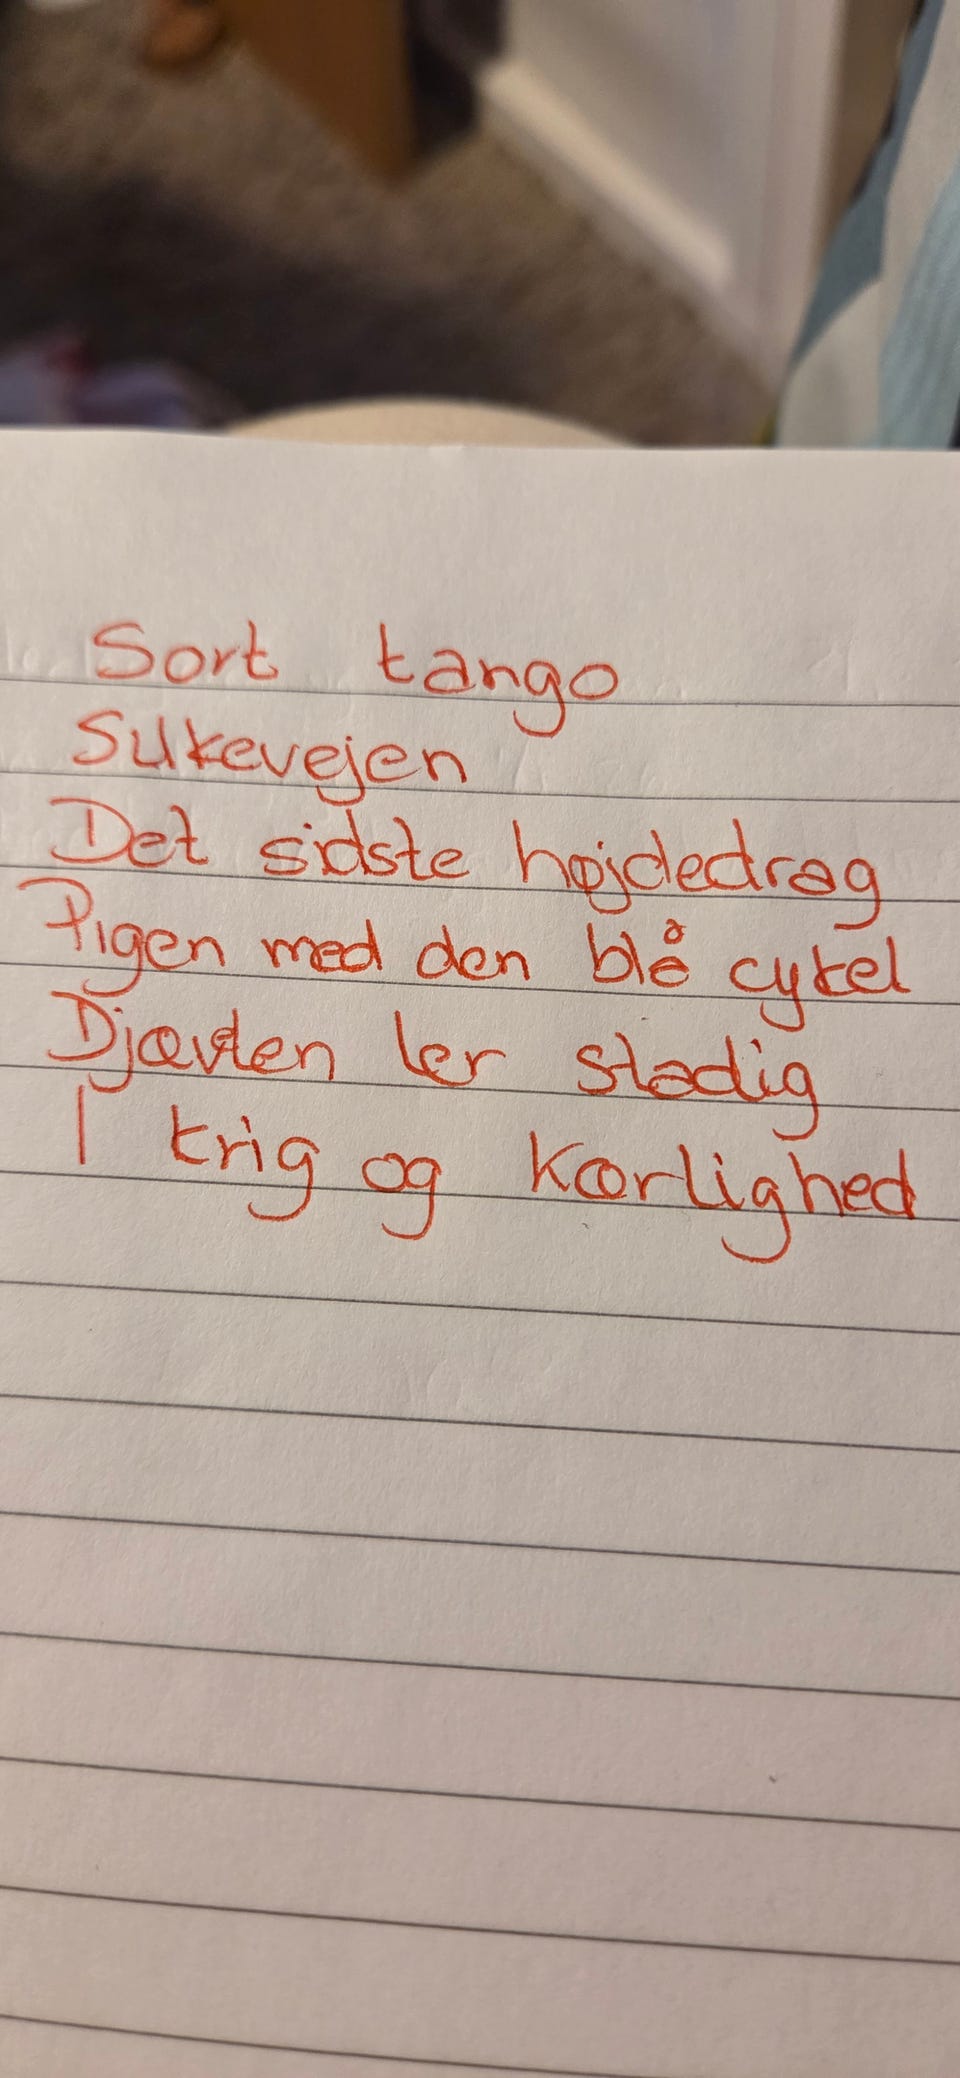 Sort tango
Silkevejen
Det sidste højdedrag
Pigen med den blå cykel
Djævlen ler stadig
I krig og kærlighed